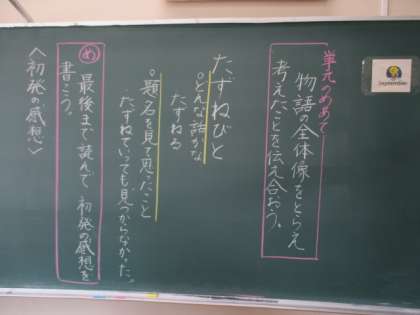 単元のめあて
物語の全体像をとらえ
考えたことを伝え合おう。
たずねびと
○どんな話かな
たずねる
○題名を見て思ったこと
・たずねていっても見つからなかった。
め
最後まで読んで 初発の感想を
書こう。
＜初発の感想＞
September